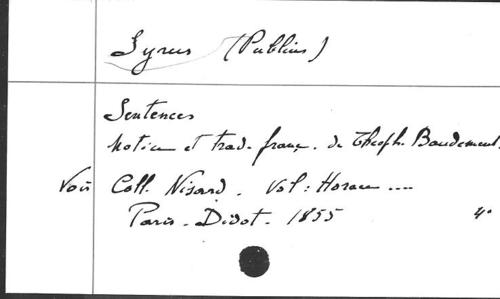 Syrus (Publius)
Sentences
Notice et trad. franç. de Théoph. Baudement.
Voir Coll. Nisard. Vol: Horace ....
Paris - Didot - 1855 4°